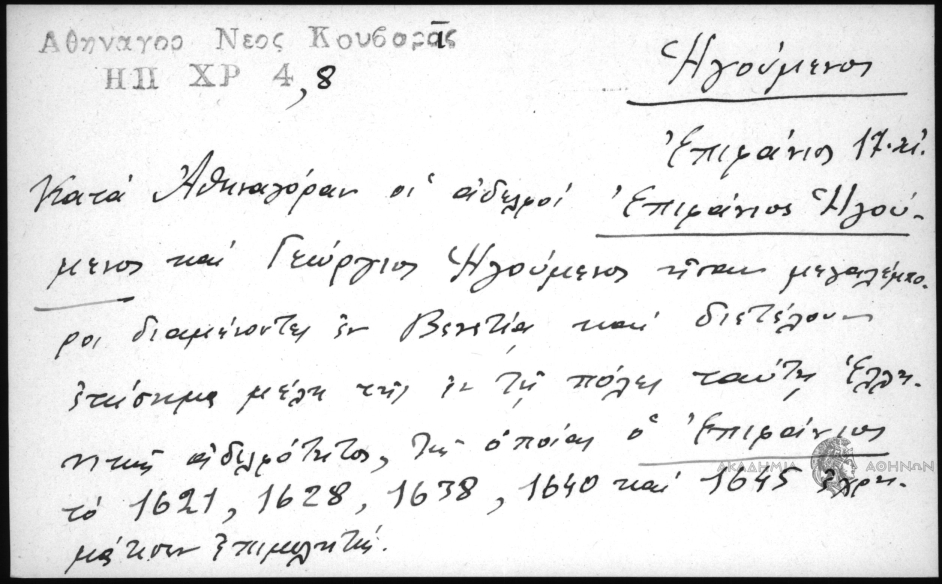 Αθηναγορ Νεος Κουβαρᾶς
ΗΠ ΧΡ 4,8
Ἡγούμενος
Ἐπιφάνιος 17. αἰ.
Κατά Ἀθηναγόραν οἱ ἀδελφοί Ἐπιφάνιος Ἡγού-
μενος καί Γεώργιος Ἡγούμενος ἦσαν μεγαλέμπο-
ροι διαμένοντες ἐν Βενετίᾳ καί διετέλουν
ἐπίσημα μέλη τῆς ἐν τῇ πόλει ταύτῃ Ἑλλη-
νικῆς ἀδελφότητος, τῆς ὁποίας ὁ Ἐπιφάνιος
τό 1621, 1628, 1638, 1640 καί 1645 ἐχρη-
μάτισεν ἐπιμελητής.
ΑΚΑΔΗΜΙΑ ΑΘΗΝΩΝ